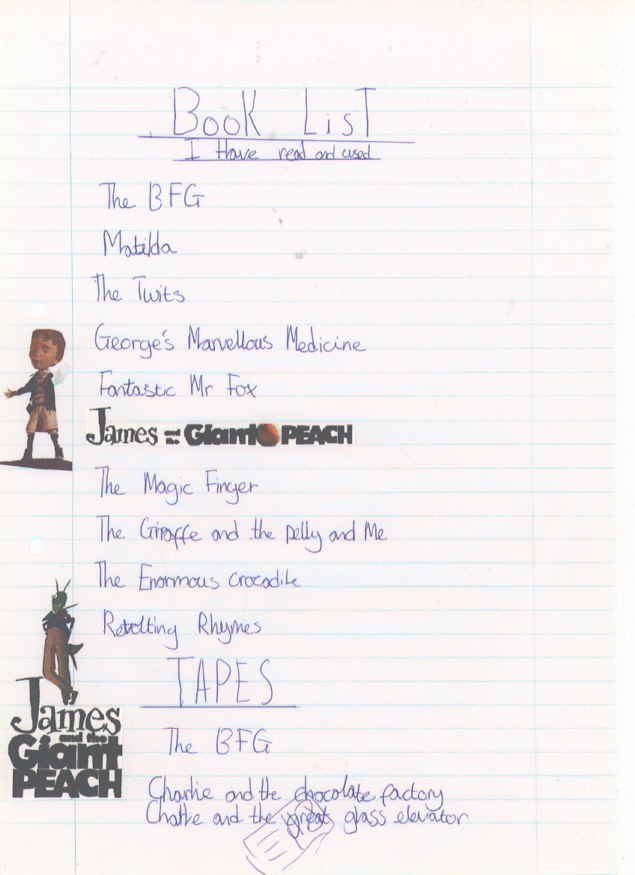 Book List
I Have read and used
The BFG
Matilda
The Twits
George's Marvellous Medicine
Fantastic Mr Fox
James and the Giant PEACH
The Magic Finger
The Giraffe and the pelly and Me
The Enormous crocodile
Revolting Rhymes
TAPES
The BFG
James
and the
Giant
PEACH
Charlie and the chocolate factory
Charlie and the great glass elevator